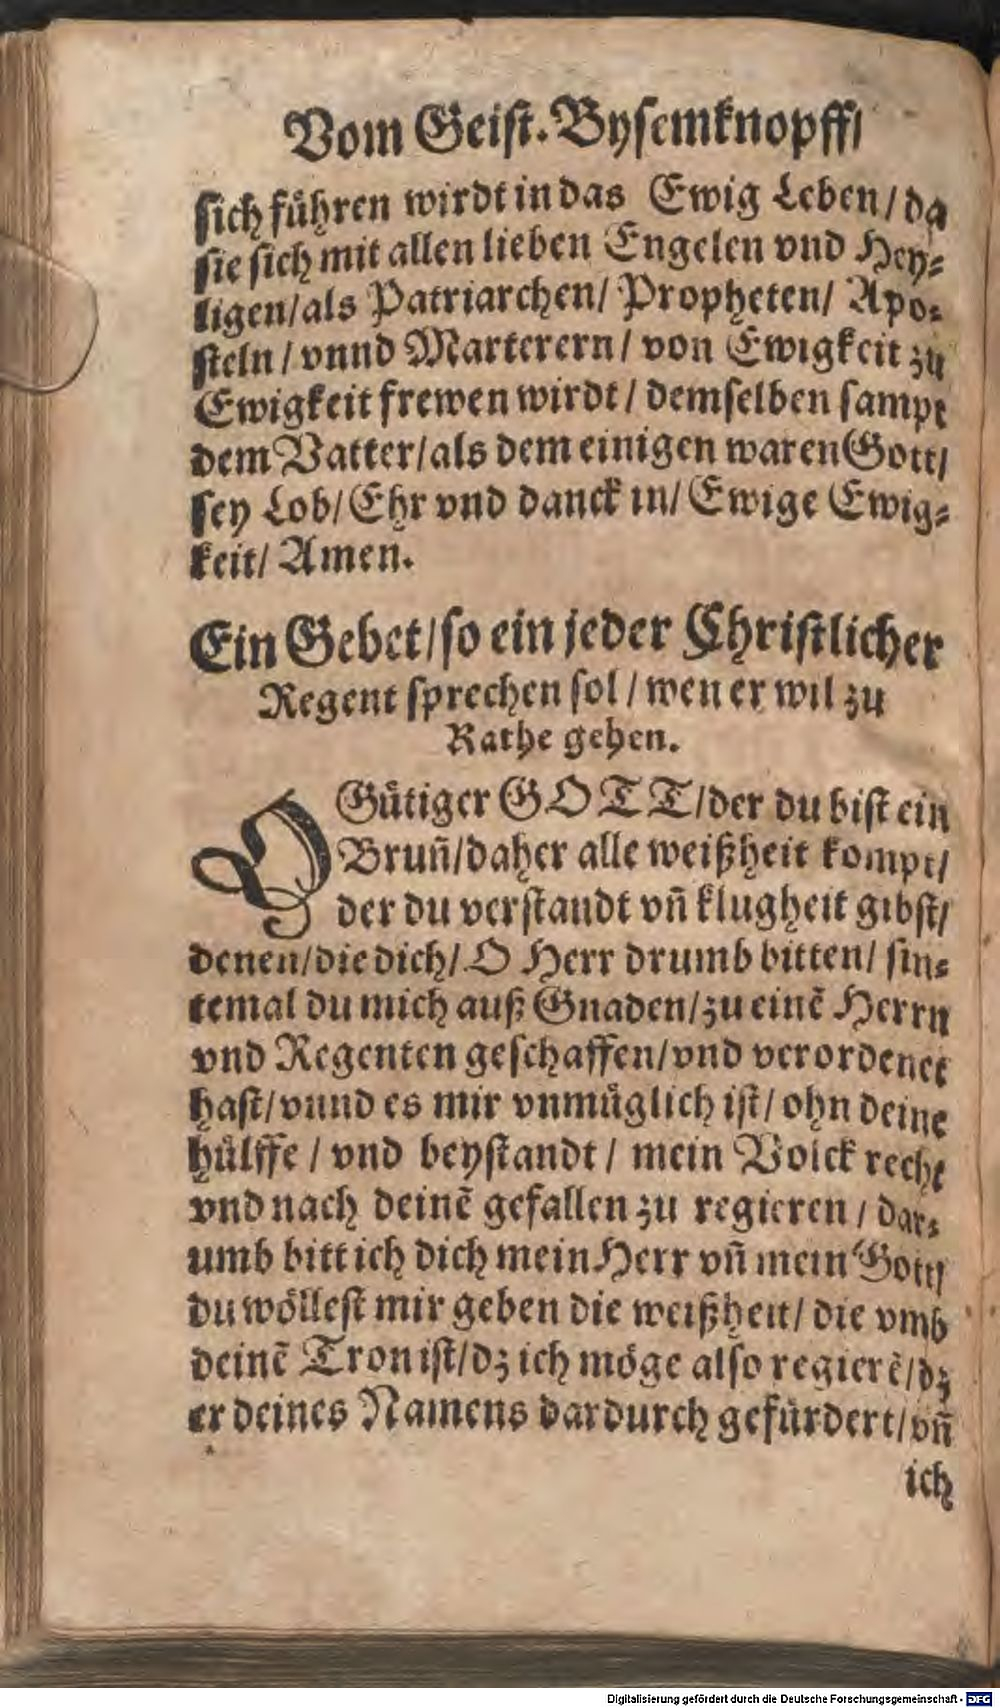 Vom Geist. Bysemknopff/
sich führen wirdt in das Ewig Leben/ da
sie sich mit allen lieben Engelen vnd Hey-
ligen/ als Patriarchen/ Propheten/ Apo-
steln/ vnnd Marterern/ von Ewigkeit zu
Ewigkeit frewen wirdt/ demselben sampt
dem Vatter/ als dem einigen waren Gott/
sey Lob/ Ehr vnd danck in/ Ewige Ewig-
keit/ Amen.
Ein Gebet/ so ein jeder Christlicher
Regent sprechen sol/ wen er wil zu
Rathe gehen.
O Gütiger GOTT/ der du bist ein
Bruñ/ daher alle weißheit kompt/
der du verstandt vñ klugheit gibst/
denen/ die dich/ O Herr drumb bitten/ sin-
temal du mich auß Gnaden/ zu einẽ Herrn
vnd Regenten geschaffen/ vnd verordenet
hast/ vnnd es mir vnmüglich ist/ ohn deine
hülffe/ vnd beystandt/ mein Volck recht
vnd nach deinẽ gefallen zu regieren/ dar-
umb bitt ich dich mein Herr vñ mein Gott/
du wöllest mir geben die weißheit/ die vmb
deinẽ Tron ist/ dz ich möge also regierẽ/ dz
er deines Namens dardurch gefürdert/ vñ
ich
Digitalisierung gefördert durch die Deutsche Forschungsgemeinschaft - DFG